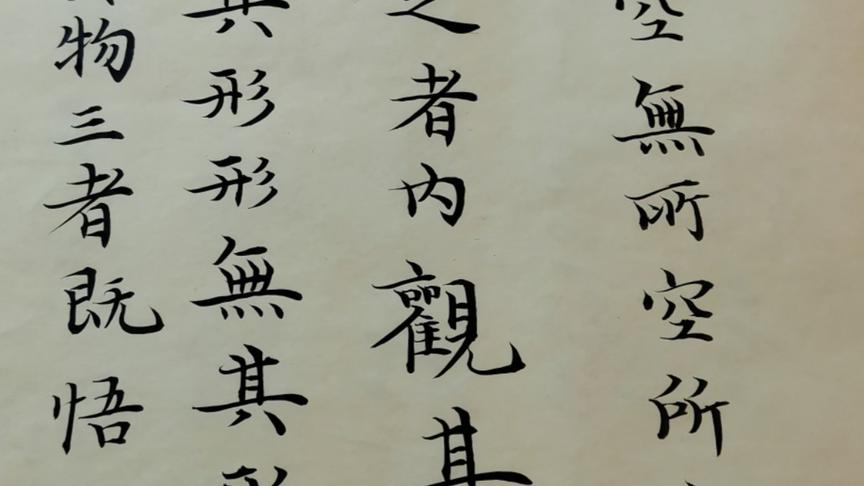 空無所空所
之者内觀其
其形形無其形
物三者既悟